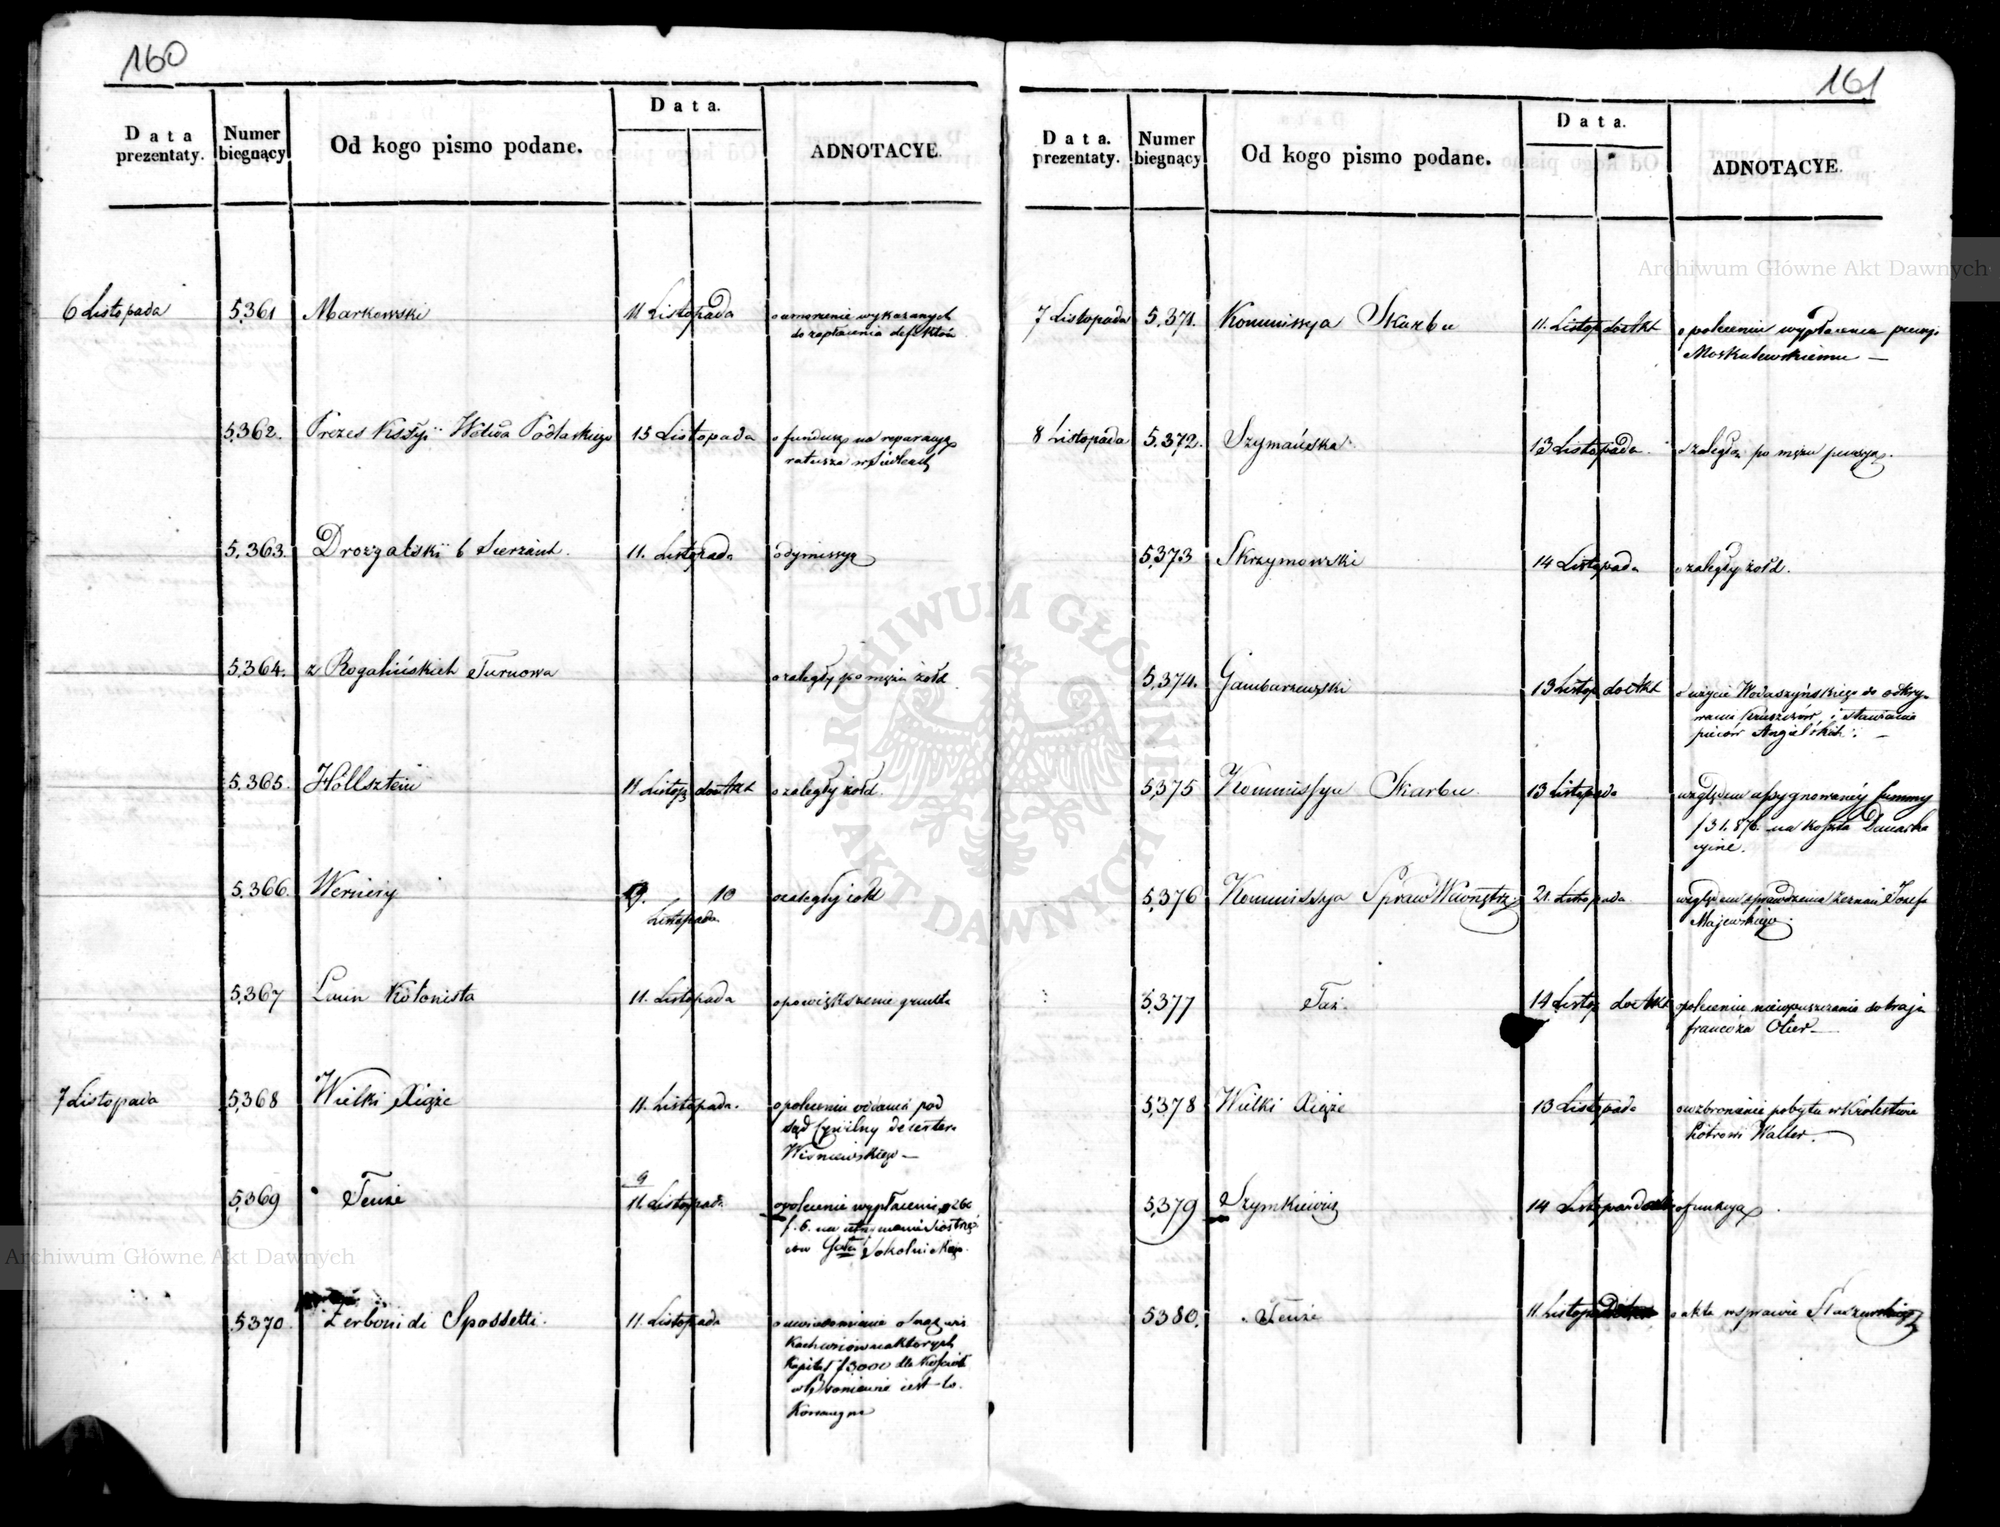 160
Data prezentaty. Numer biegnący Od kogo pismo podane. Data. ADNOTACYE.
6 Listopada 5,361 Markowski 11 Listopada o umorzenie wykazanych
do zapłacenia defektów
5,362. Prezes Kssyi Wdztwa Podlaskiego 15 Listopada o fundusz na reparacyę
ratusza w Siedlcach
5,363. Drozgalski b Sierżant. 11. Listopada o dymissyą
5,364. z Rogalińskich Turnowa o zaległy po mężu żołd
5,365. Höllsztein 11 Listop do Akt o zaległy żołd.
5,366. Werniery 19. 10 o zaległy żołd
Listopada
5,367 Laun Kolonista 11. Listopada o powiększenie gruntu
7 Listopada 5,368 Wielki Xiąże 11. Listopada. o polecenie oddania pod
sąd Cywilny dezerter.
Wiśniewskiego —
5,369 Tenże 9
11 Listopada o polecenie wypłacenia
f. 6. na
Sokolnickiego.
5,370. Zerboni di Sposetti. 11. Listopada o uwiadomienie o nazwis
Kach
Kapitał f 3000 dla Kościoła
w Bronieniu iest lo.
Kowany
161
Data. prezentaty. Numer biegnący Od kogo pismo podane. Data. ADNOTACYE.
7 Listopada 5,371. Kommissya Skarbu 11. Listop do Akt o polecenie wypłacenia pensyi
Moskalewskiemu —
8 Listopada 5,372. Szymańska 13 Listopada. o zaległą po mężu pensyą.
5,373 Skrzymowski 14 Listopada o zaległy żołd.
5,374. Gambarzewski 13 Listop do Akt o użycie Wodaszyńskiego do odkry-
wania Kruszców, i stawiania
pieców Angielskich. —
5,375 Kommissya Skarbu. 13 Listopada względem assygnowanéy summy
f 31,876. na koszta
5,376 Kommissya Spraw Wewnętrz. 21. Listopada względem sprawdzenia zeznań Jozefa
Majewskiego.
5,377 Taż. 14 Listop do Akt o polecenie niewpuszczania do kraju
francuza Otier —
5,378 Wielki Xiąże 13 Listopada o wzbronienie pobytu w Królestwie
Piotrowi Walter. —
5,379 Szymkiewicz 14 Listopada do Akt o funkcyą.
5,380. Tenże 11 Listopada o akta w sprawie Staczewskiego
Archiwum Główne Akt Dawnych
ARCHIWUM GŁÓWNE AKT DAWNYCH
Archiwum Główne Akt Dawnych